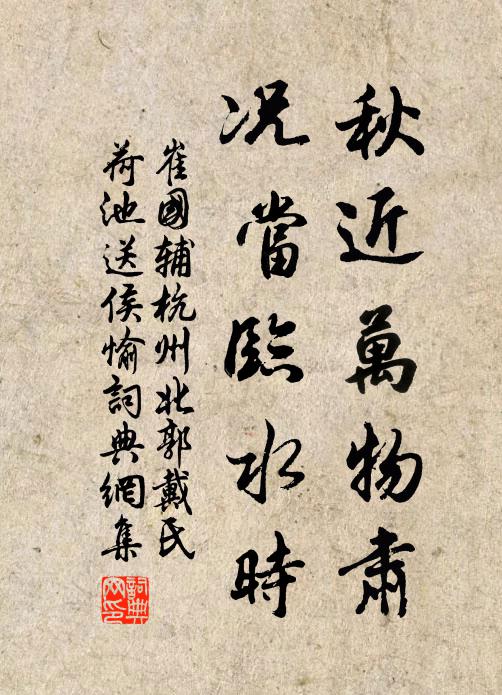 秋近萬物肅
况當臨水時
崔國辅杭州北郭戴氏
荷池送侯愉詞典網集
詞典網印